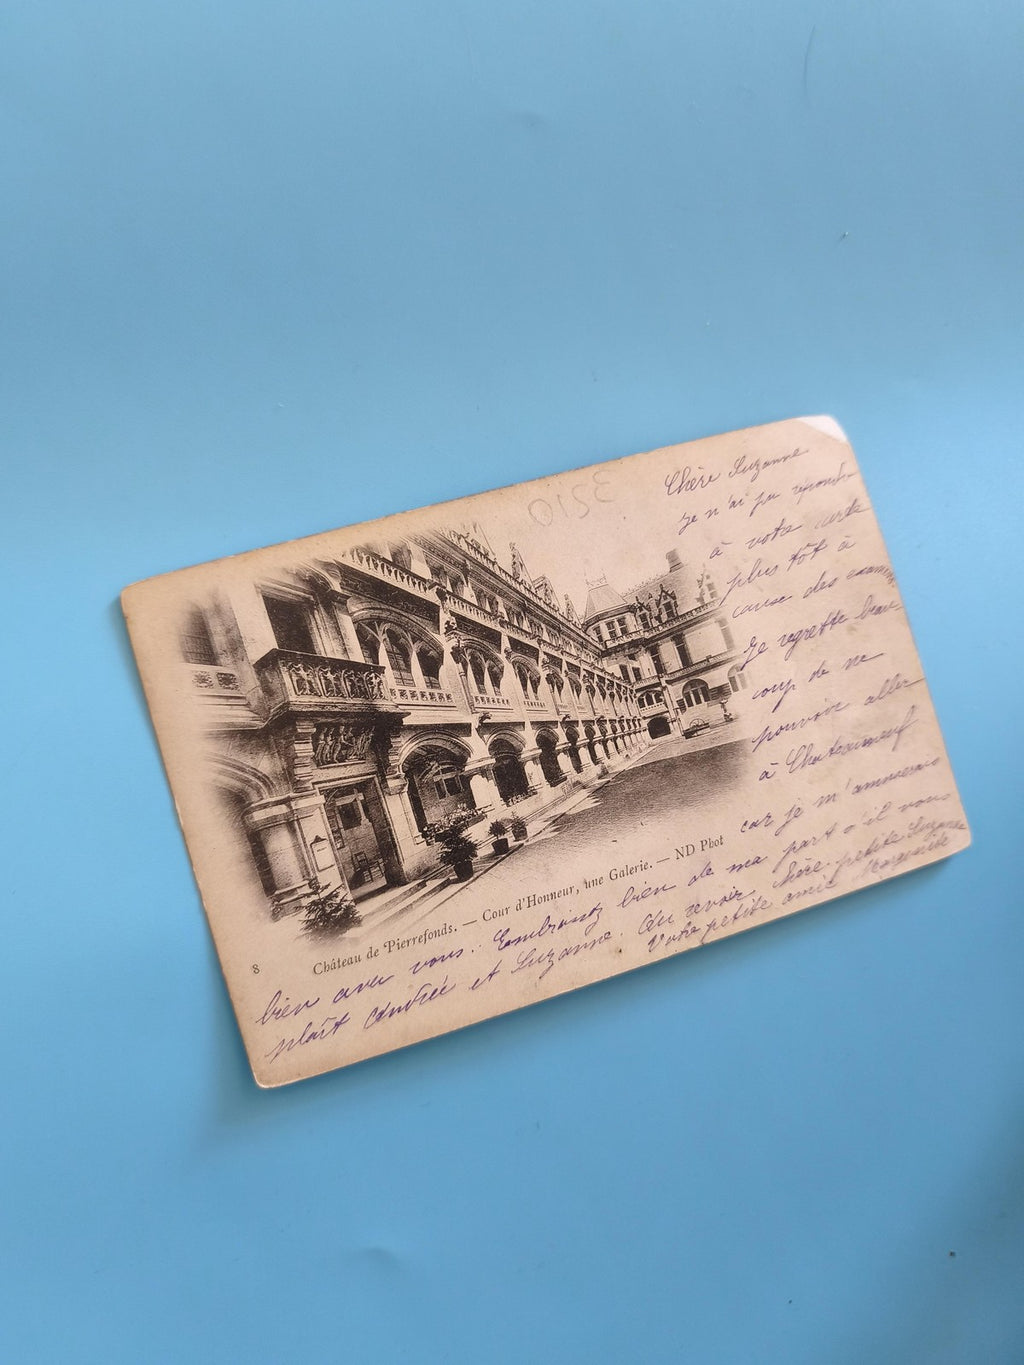 3310
Chère Suzanne
je n'ai pu répondre
à votre carte
plus tôt à
cause des examens
Je regrette beau-
coup de ne
pouvoir aller
à Chateauneuf
car je m'amuserais
bien avec vous. Embrassez bien de ma part s'il vous
plaît Andrée et Suzanne. Au revoir. Chère petite Suzanne
Votre petite amie Marguerite
8 Château de Pierrefonds. — Cour d'Honneur, une Galerie. — ND Phot